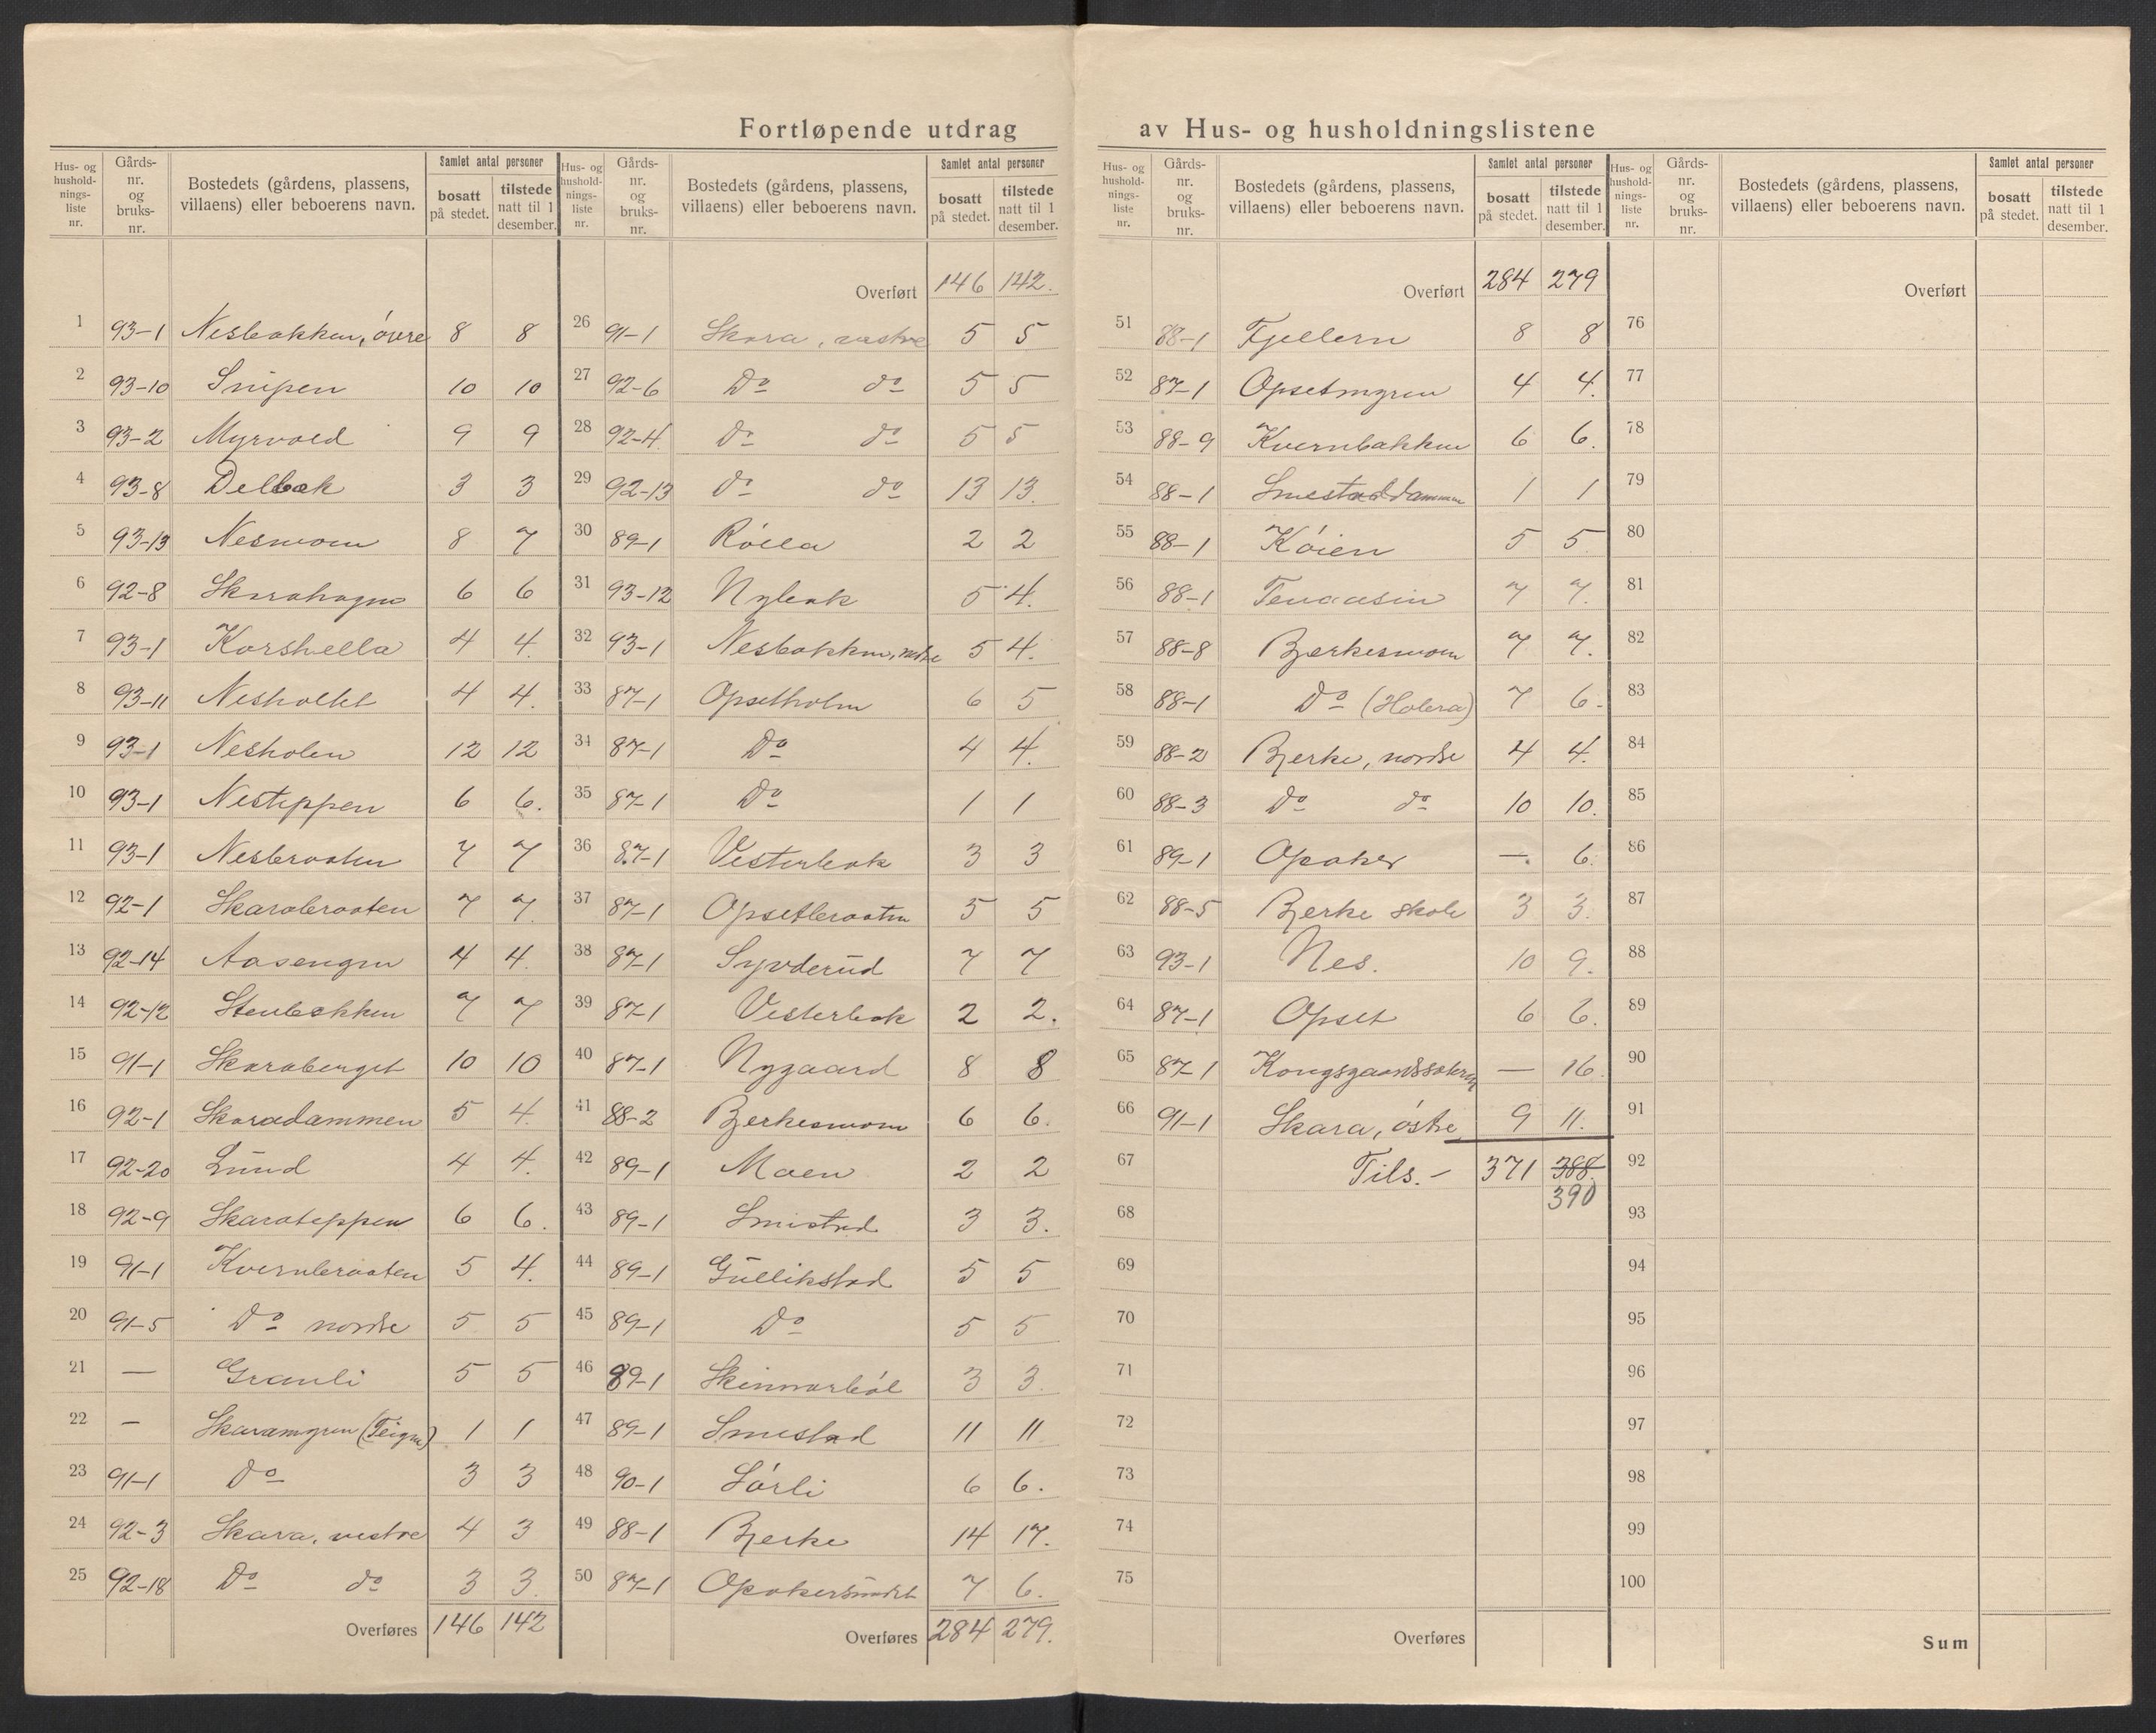 Fortløpende utdrag av Hus- og husholdningslistene
Hus- og husholdningsliste nr. | Gårds-nr. og bruks-nr. | Bostedets (gårdens, plassens, villaens) eller beboerens navn. | Samlet antal personer | bosatt på stedet. | tilstede natt til 1 desember.
1 93-1 Nesbakken, övre 8 8
2 93-10 Snipen 10 10
3 93-2 Myrvold 9 9
4 93-8 Delbæk 3 3
5 93-13 Nesmoen 8 7
6 92-8 Skarahagen 6 6
7 93-1 Korshella 4 4.
8 93-11 Nesholtet 4 4.
9 93-1 Nesholen 12 12
10 93-1 Nesteppen 6 6.
11 93-1 Nesbraaten 7 7
12 92-1 Skarabraaten 7 7
13 92-14 Aasengen 4 4
14 92-12 Stenbakken 7 7
15 91-1 Skaraberget 10 10
16 92-1 Skaradammen 5 4.
17 92-20 Lund 4 4.
18 92-9 Skarateppen 6 6.
19 91-1 Kvernbraaten 5 4.
20 91-5 Do nordre 5 5
21 — Granli 5 5
22 — Skaraengen (Teigen) 1 1
23 91-1 Do 3 3
24 92-3 Skara, vestre 4 3
25 92-18 Do do 3 3.
Overføres 146 142
Hus- og husholdningsliste nr. | Gårds-nr. og bruks-nr. | Bostedets (gårdens, plassens, villaens) eller beboerens navn. | Samlet antal personer | bosatt på stedet. | tilstede natt til 1 desember.
Overført 146 142.
26 91-1 Skara, vestre 5 5
27 92-6 Do do 5 5
28 92-4 do do 5 5
29 92-13 do do 13 13.
30 89-1 Rölla 2 2
31 93-12 Nybæk 5 4.
32 93-1 Nesbakken, nedre 5 4.
33 87-1 Opsetholm 6 5
34 87-1 Do 4 4.
35 87-1 Do 1 1
36 87-1 Vesterbæk 3 3
37 87-1 Opsetbraaten 5 5
38 87-1 Syvderud 7 7
39 87-1 Vesterbæk 2 2.
40 87-1 Nygaard 8 8
41 88-2 Bjerkesmoen 6 6.
42 89-1 Moen 2 2
43 89-1 Smistad 3 3.
44 89-1 Gullikstad 5 5
45 89-1 Do 5 5
46 89-1 Skinnarböl 3 3.
47 89-1 Smestad 11 11
48 90-1 Sörli 6 6.
49 88-1 Bjerke 14 17.
50 87-1 Opakersundet 7 6.
Overføres 284 279.
Hus- og husholdningsliste nr. | Gårds-nr. og bruks-nr. | Bostedets (gårdens, plassens, villaens) eller beboerens navn. | Samlet antal personer | bosatt på stedet. | tilstede natt til 1 desember.
Overført 284 279
51 88-1 Fjellern 8 8
52 87-1 Opsetmyren 4 4.
53 88-9 Kvernbakken 6 6.
54 88-1 Smestaddammen 1 1
55 88-1 Köien 5 5
56 88-1 7 7.
57 88-8 Bjerkesmoen 7 7.
58 88-1 Do (Holera) 7 6.
59 88-2 Bjerke, nordre 4 4.
60 88-3 Do do 10 10.
61 89-1 Opaker —. 6.
62 88-5 Bjerke skole 3 3.
63 93-1 Nes. 10 9.
64 87-1 Opset 6 6.
65 87-1 Kongsgaardssæteren — 16.
66 91-1 Skara, östre 9 11.
67 Tils. - 371 388.
390
68
69
70
71
72
73
74
75
Overføres
Hus- og husholdningsliste nr. | Gårds-nr. og bruks-nr. | Bostedets (gårdens, plassens, villaens) eller beboerens navn. | Samlet antal personer | bosatt på stedet. | tilstede natt til 1 desember.
Overført
76
77
78
79
80
81
82
83
84
85
86
87
88
89
90
91
92
93
94
95
96
97
98
99
100
Sum